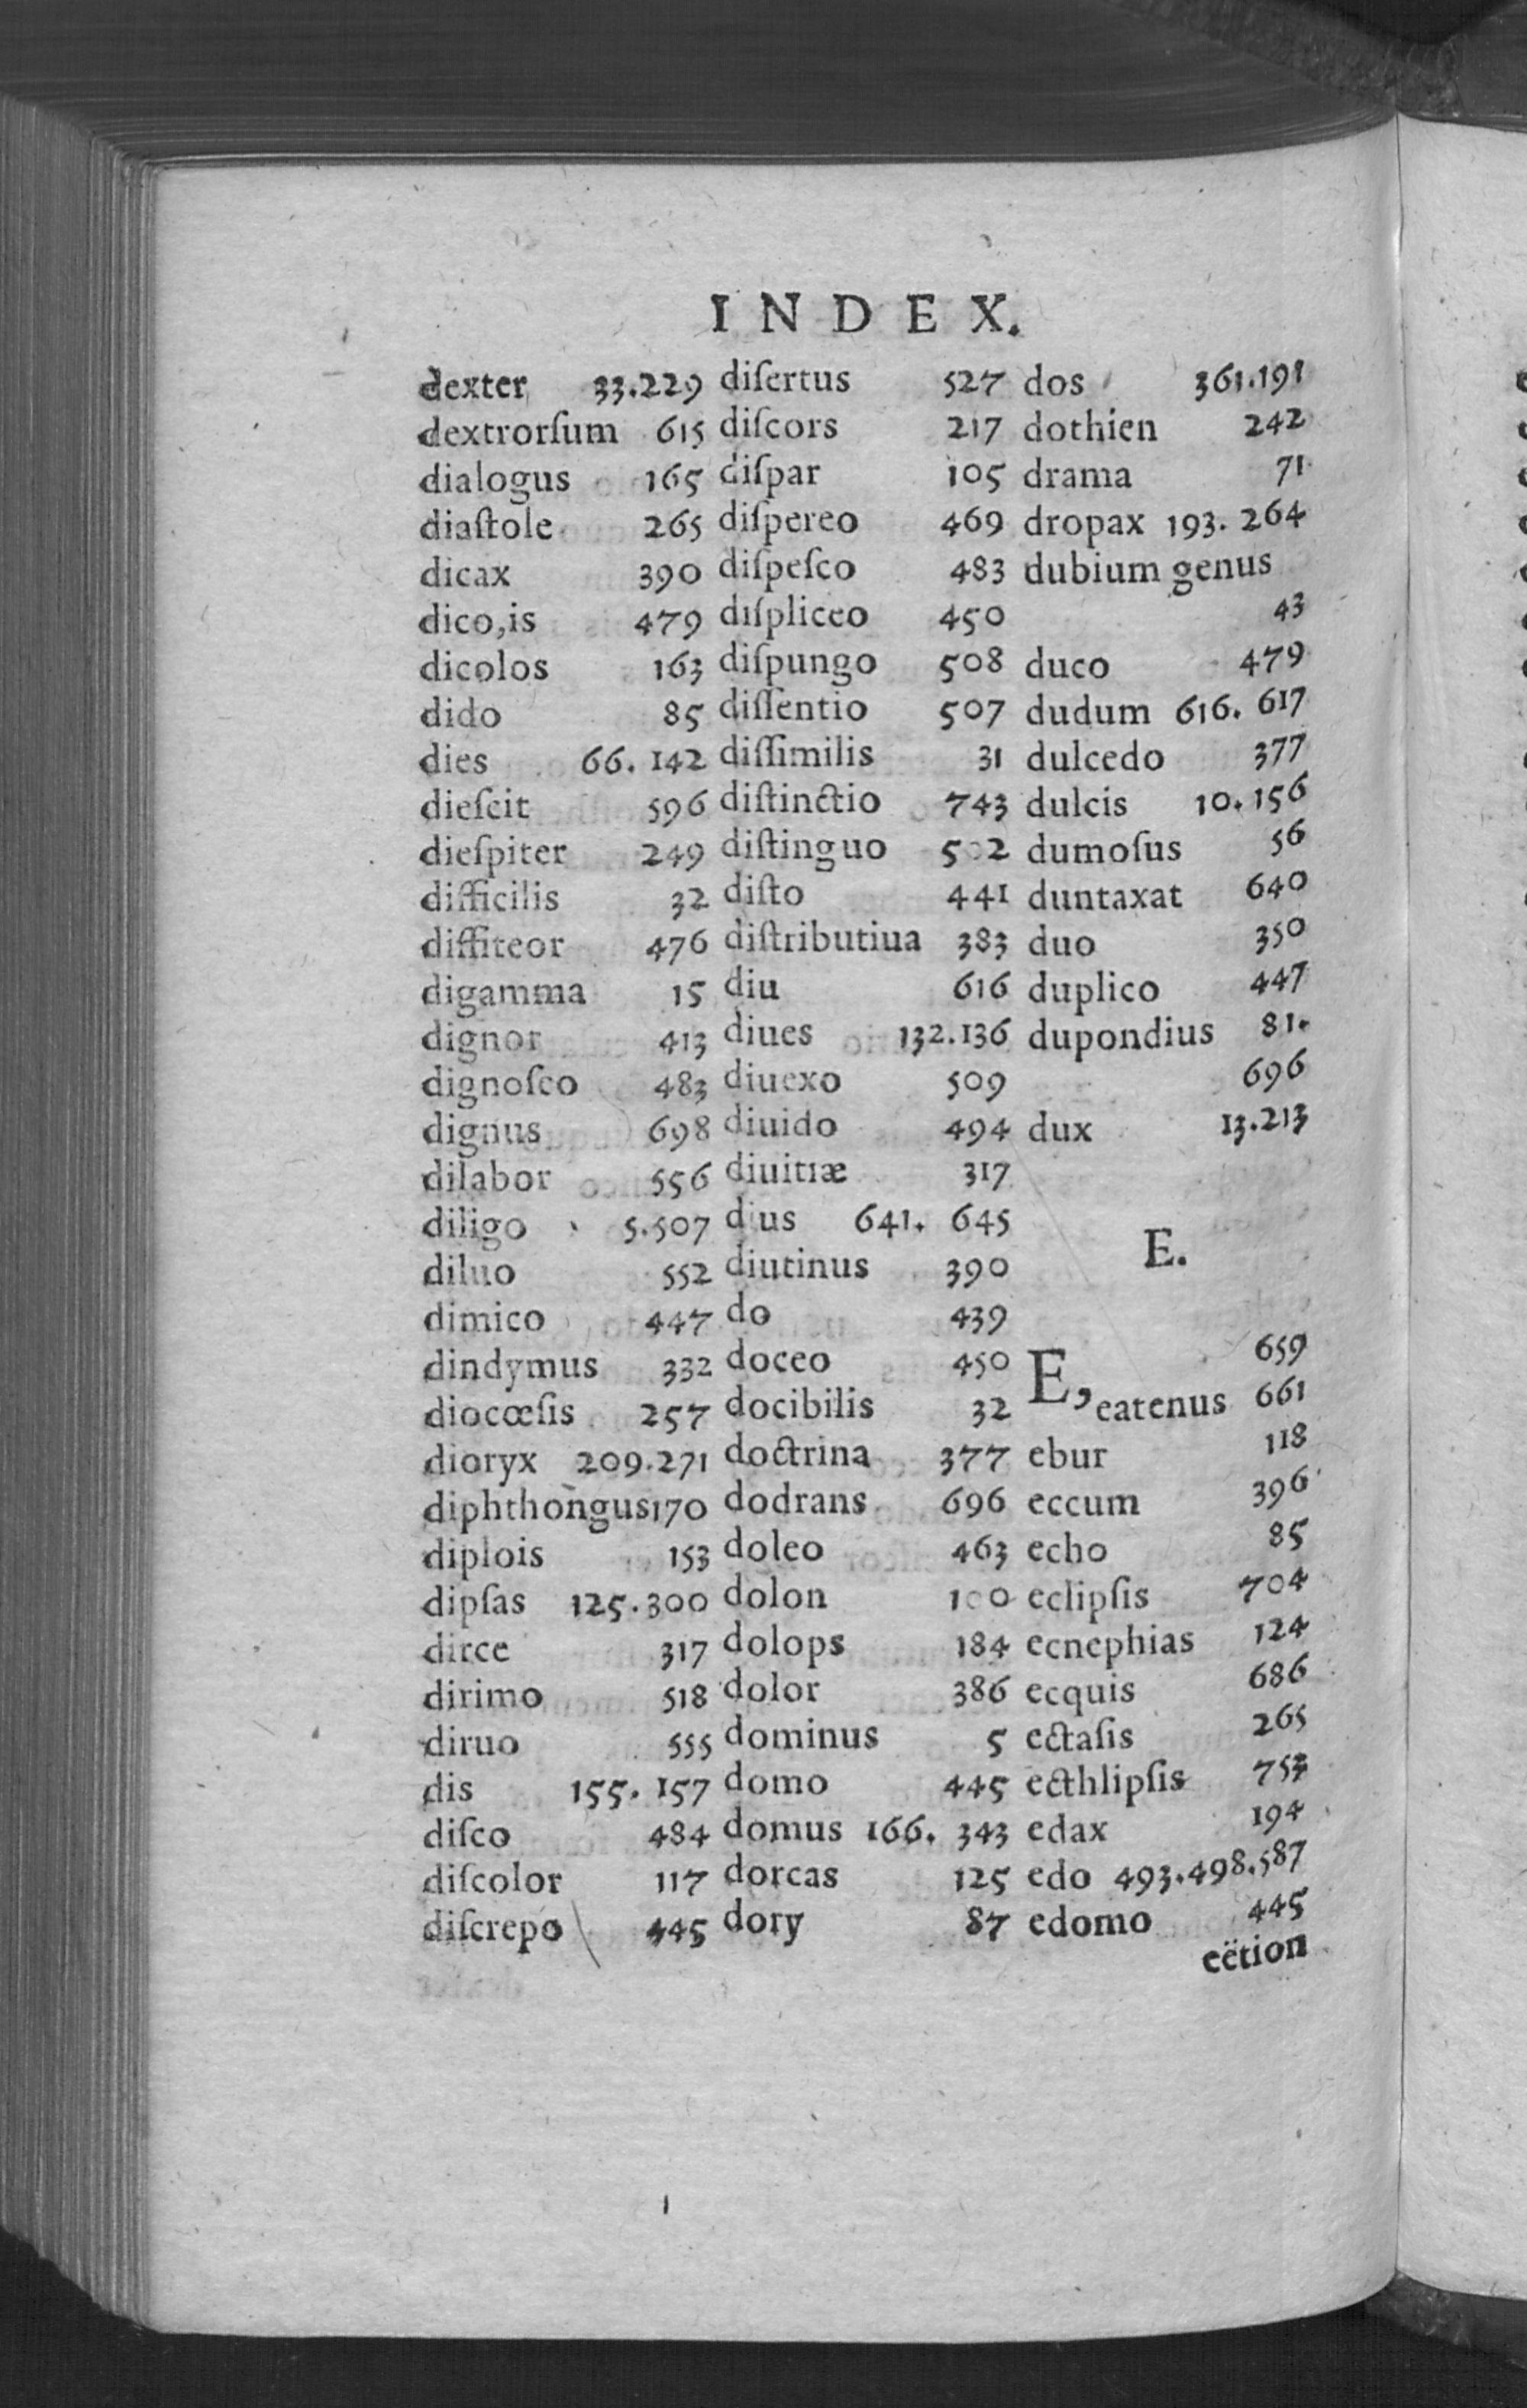 INDEX.
dexter 33.229
dextrorſum 615
dialogus 165
diaſtole 265
dicax 390
dico,is 479
dicolos 163
dido 85
dies 66. 142
dieſcit 596
dieſpiter 249
difficilis 32
diffiteor 476
digamma 15
dignor 413
dignoſco 483
dignus 698
dilabor 556
diligo 5.507
diluo 552
dimico 447
dindymus 332
diocœſis 257
dioryx 209.271
diphthongus170
diplois 153
dipſas 125.300
dirce 317
dirimo 518
diruo 555
dis 155. 157
diſco 484
diſcolor 117
diſcrepo 445
diſertus 527
diſcors 217
diſpar 105
diſpereo 469
diſpeſco 483
diſpliceo 450
diſpungo 508
diſſentio 507
diſſimilis 31
diſtinctio 743
diſtinguo 502
diſto 441
diſtributiua 383
diu 616
diues 132.136
diuexo 509
diuido 494
diuitiæ 317
dius 641. 645
diutinus 390
do 439
doceo 450
docibilis 32
doctrina 377
dodrans 696
doleo 463
dolon 100
dolops 184
dolor 386
dominus 5
domo 445
domus 166. 343
dorcas 125
dory 87
dos 361.191
dothien 242
drama 71
dropax 193. 264
dubium genus
43
duco 479
dudum 616. 617
dulcedo 377
dulcis 10.156
dumoſus 56
duntaxat 640
duo 350
duplico 447
dupondius 81.
696
dux 13.213
E.
E, 659
eatenus 661
ebur 118
eccum 396
echo 85
eclipſis 704
ecnephias 124
ecquis 686
ectaſis 265
ecthlipſis 753
edax 194
edo 493.498.587
edomo 445
eëtion